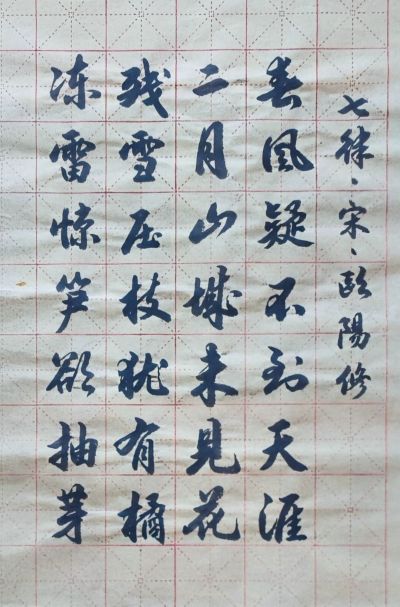 七律、宋、欧陽修
春风疑不到天涯
二月山城未見花
残雪压枝犹有橘
冻雷惊笋欲抽芽